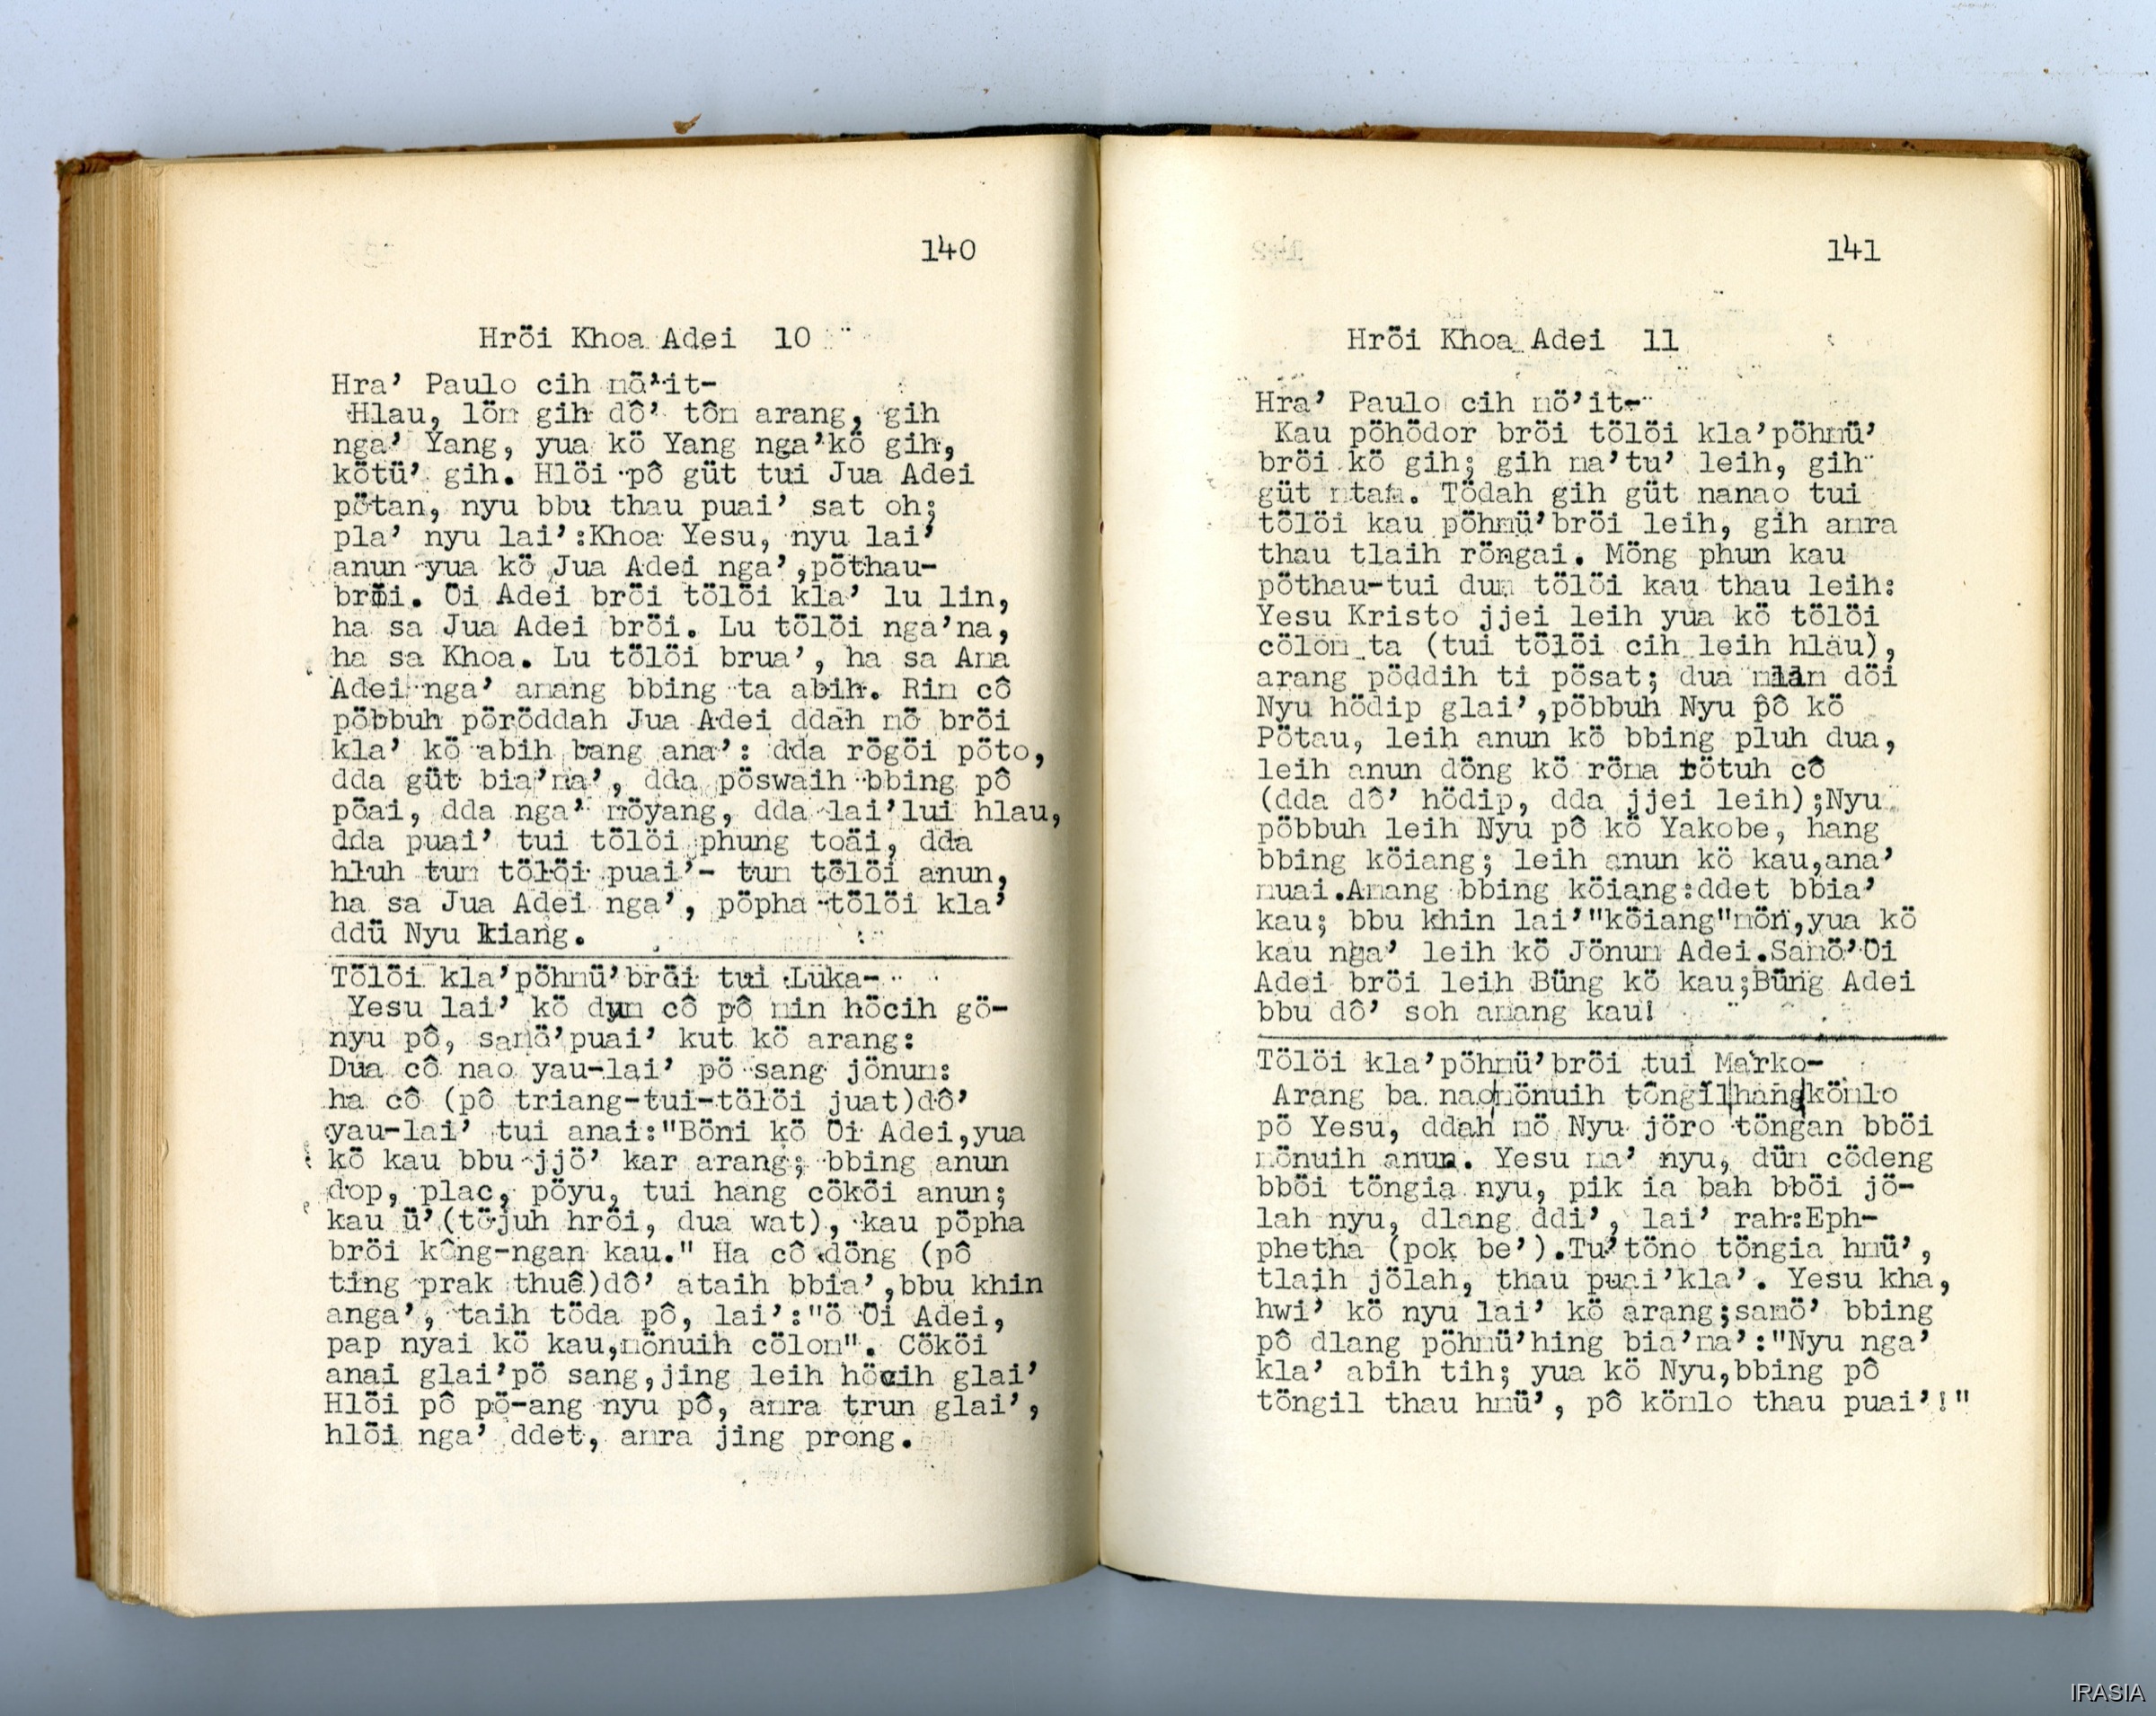 140
Hröi Khoa Adei 10
Hra’ Paulo cih mö’it-
Hlau, löm gih dô’ tôm arang, gih
nga’ Yang, yua kö Yang nga’kö gih,
kötü’ gih. Hlöi pô güt tui Jua Adei
pötan, nyu bbu thau puai’ sat oh;
pla’ nyu lai’:Khoa Yesu, nyu lai’
anun yua kö Jua Adei nga’,pöthau-
bröi. Öi Adei bröi tölöi kla’ lu lin,
ha sa Jua Adei bröi. Lu tölöi nga’na,
ha sa Khoa. Lu tölöi brua’, ha sa Ama
Adei nga’ amang bbing ta abih. Rim cô
pöbbuh pöröddah Jua Adei ddah mö bröi
kla’ kö abih bang ana’: dda rögöi pöto,
dda güt bia’ma’, dda pöswaih bbing pô
pöai, dda nga’ möyang, dda lai’lui hlau,
dda puai’ tui tölöi phung toäi, dda
hluh tum tölöi puai’- tum tölöi anun,
ha sa Jua Adei nga’, pöpha tölöi kla’
ddü Nyu kiang.
Tölöi kla’pöhmü’bröi tui Luka-
Yesu lai’ kö dum cô pô min höcih gö-
nyu pô, samö’puai’ kut kö arang:
Dua cô nao yau-lai’ pö sang jönum:
ha cô (pô triang-tui-tölöi juat)dô’
yau-lai’ tui anai:"Böni kö Öi Adei,yua
kö kau bbu jjö’ kar arang; bbing anun
dop, plac, pöyu, tui hang cököi anun;
kau ü’(töjuh hröi, dua wat), kau pöpha
bröi kông-ngan kau." Ha cô döng (pô
ting prak thuê)dô’ ataih bbia’,bbu khin
anga’, taih töda pô, lai’:"ö Öi Adei,
pap nyai kö kau,mönuih cölom". Cököi
anai glai’pö sang,jing leih höcih glai’
Hlöi pô pö-ang nyu pô, amra trun glai’,
hlöi nga’ ddet, amra jing prong.
141
Hröi Khoa Adei 11
Hra’ Paulo cih mö’it-
Kau pöhödor bröi tölöi kla’pöhmü’
bröi kö gih; gih ma’tu’ leih, gih
güt mtam. Tödah gih güt nanao tui
tölöi kau pöhmü’bröi leih, gih amra
thau tlaih röngai. Möng phun kau
pöthau-tui dum tölöi kau thau leih:
Yesu Kristo jjei leih yua kö tölöi
cölom ta (tui tölöi cih leih hlau),
arang pöddih ti pösat; dua mlam döi
Nyu hödip glai’,pöbbuh Nyu pô kö
Pötau, leih anun kö bbing pluh dua,
leih anun döng kö röma rötuh cô
(dda dô’ hödip, dda jjei leih);Nyu
pöbbuh leih Nyu pô kö Yakobe, hang
bbing köiang; leih anun kö kau,ana’
muai.Amang bbing köiang:ddet bbia’
kau; bbu khin lai’"köiang"mön,yua kö
kau nga’ leih kö Jönum Adei.Samö’Öi
Adei bröi leih Büng kö kau;Büng Adei
bbu dô’ soh amang kau!
Tölöi kla’pöhmü’bröi tui Marko-
Arang ba nao mönuih töngil hang kömlo
pö Yesu, ddah mö Nyu jöro töngan bböi
mönuih anun. Yesu ma’ nyu, düm cödeng
bböi töngia nyu, pik ia bah bböi jö-
lah nyu, dlang ddi’, lai’ rah:Eph-
phetha (pok be’).Tu’töno töngia hmü’,
tlaih jölah, thau puai’kla’. Yesu kha,
hwi’ kö nyu lai’ kö arang;samö’ bbing
pô dlang pöhmü’hing bia’ma’:"Nyu nga’
kla’ abih tih; yua kö Nyu,bbing pô
töngil thau hmü’, pô kömlo thau puai’!"
IRASIA